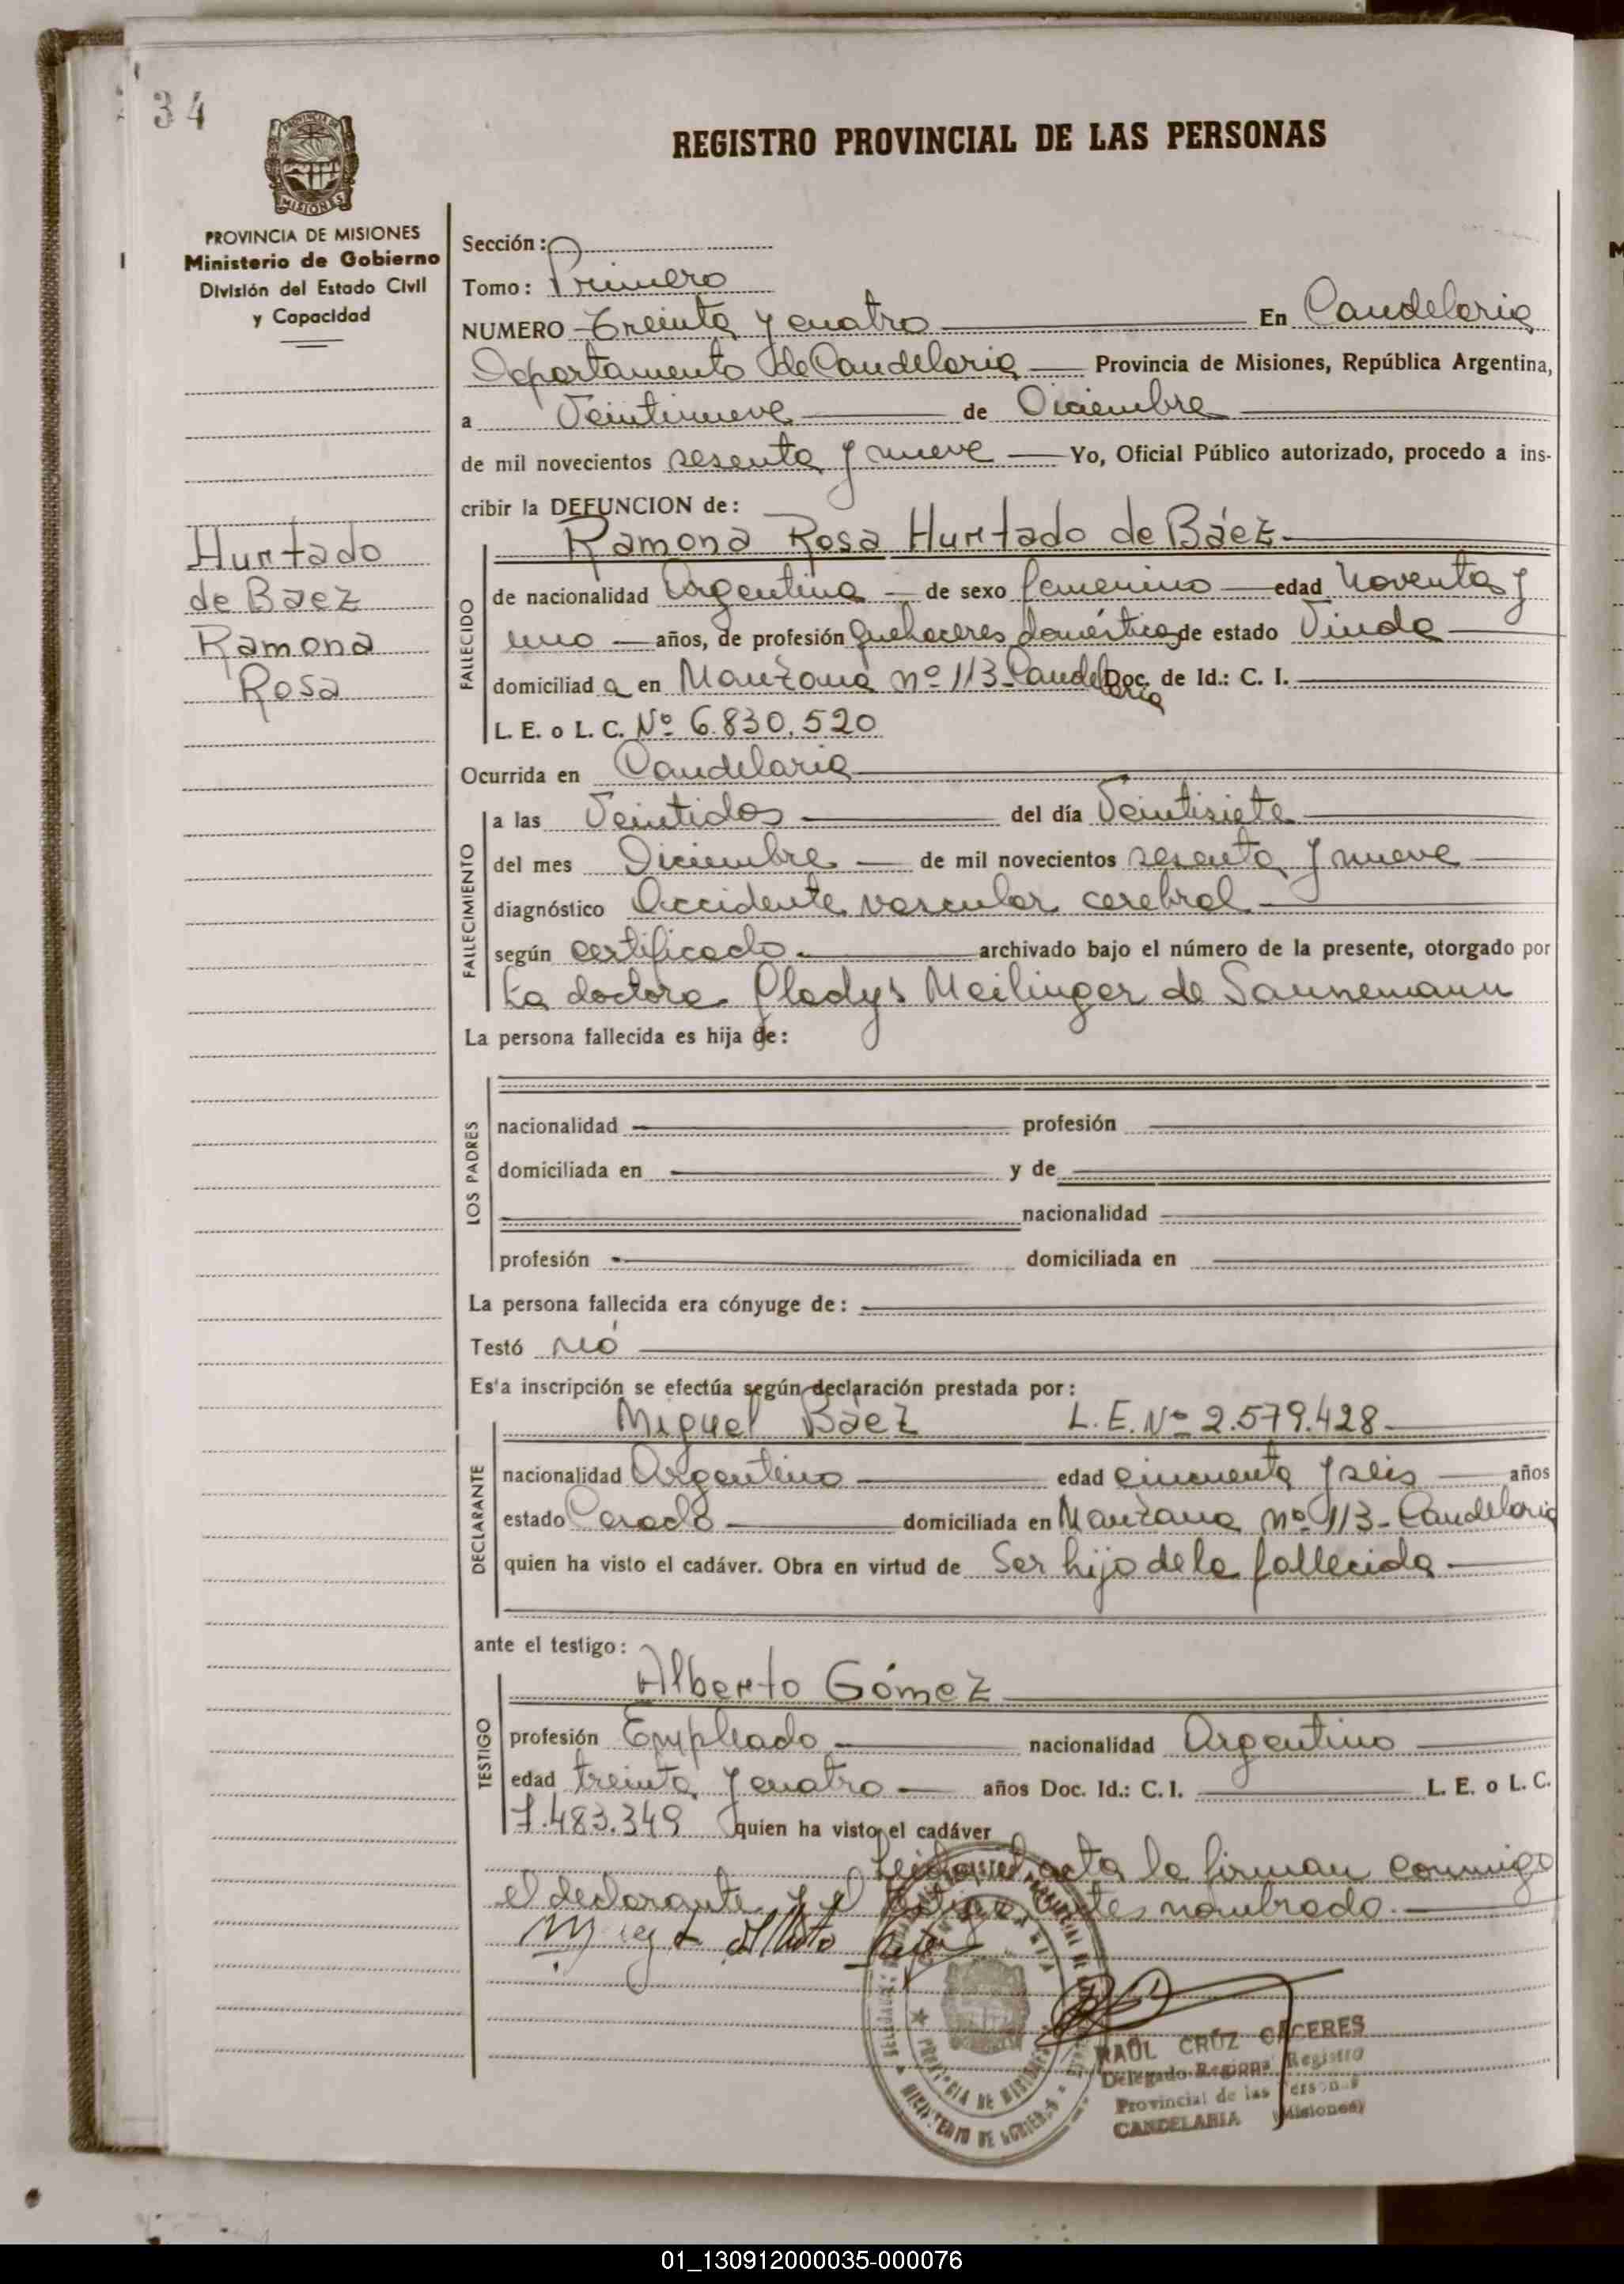 34
REGISTRO PROVINCIAL DE LAS PERSONAS
PROVINCIA DE MISIONES
Ministerio de Gobierno
División del Estado Civil
y Capacidad
Hurtado
de Baez
Ramona
Rosa
Sección:
Tomo: Primero
NUMERO Treinta y cuatro En Candelaria
Departamento de Candelaria Provincia de Misiones, República Argentina,
a Veintinueve de Diciembre
de mil novecientos sesenta y nueve Yo, Oficial Público autorizado, procedo a ins-
cribir la DEFUNCION de:
Ramona Rosa Hurtado de Báez
FALLECIDO
de nacionalidad Argentina de sexo femenino edad Noventa y
uno años, de profesión Quehaceres domésticos de estado Viuda
domiciliad a en Manzana nº 113-Candelaria Doc. de Id.: C. I.
L. E. o L. C. Nº 6.830.520
Ocurrida en Candelaria
FALLECIMIENTO
a las Veintidos del día Veintisiete
del mes Diciembre de mil novecientos sesenta y nueve
diagnóstico Accidente vascular cerebral
según certificado archivado bajo el número de la presente, otorgado por
La doctora Gladys Meilinger de Sannemann
La persona fallecida es hija de:
LOS PADRES
nacionalidad profesión
domiciliada en y de
nacionalidad
profesión domiciliada en
La persona fallecida era cónyuge de:
Testó nó
Es'a inscripción se efectúa según declaración prestada por:
Miguel Báez L.E. Nº 2.579.428
DECLARANTE
nacionalidad Argentino edad cincuenta y seis años
estado Casado domiciliada en Manzana nº 113-Candelaria
quien ha visto el cadáver. Obra en virtud de Ser hijo de la fallecida
ante el testigo:
Alberto Gómez
TESTIGO
profesión Empleado nacionalidad Argentino
edad treinta y cuatro años Doc. Id.: C. I. L. E. o L. C.
7.483.349 quien ha visto el cadáver
Leida el acta la firman conmigo
el declarante y el testigo antes nombrado.
PROVINCIA DE MISIONES
MINISTERIO DE GOBIERNO
RAÚL CRUZ CÁCERES
Delegado Regional Registro
Provincial de las Personas
CANDELARIA (Misiones)
01_130912000035-000076